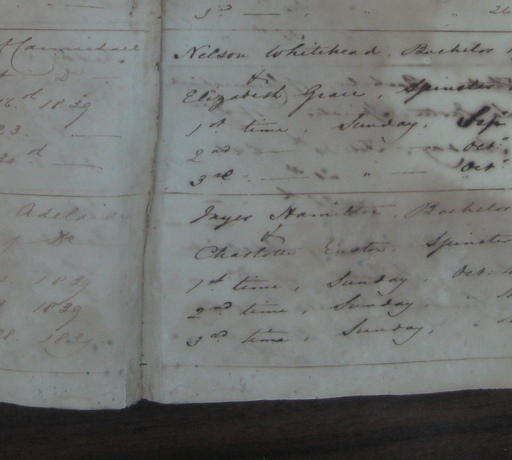 Carmichael
16.th 1839
23.
Adelai
1839
1839
28. 1839
3rd — " 26
Nelson Whitehead. Bachelor
&
Elizabeth Grace, Spinster
1st time, Sunday, Sep
2nd — " — Oct
3rd — " — Oct
Hamilton Bachelor
&
Charlotte Spinster
1st time, Sunday. Oct.
2nd time, Sunday "
3rd time, Sunday, "